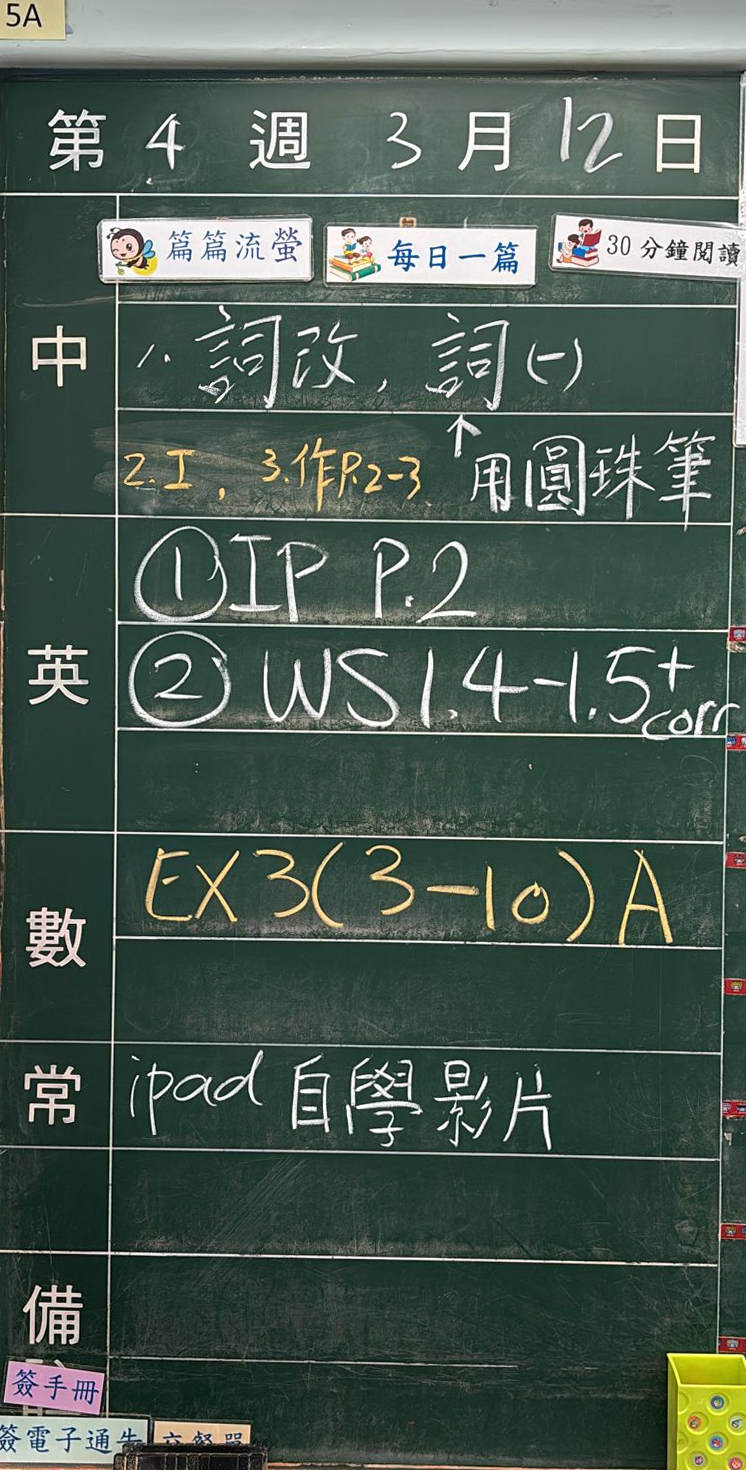 5A
第 4 週 3 月 12 日
篇篇流螢 每日一篇 30分鐘閱讀
中
1. 詞改, 詞(一)
2.工, 3.作P.2-3 ↑用圓珠筆
英
①IP P.2
② WS 1.4-1.5+corr
數
EX 3(3-10)A
常
ipad 自學影片
備
簽手冊
簽電子通告